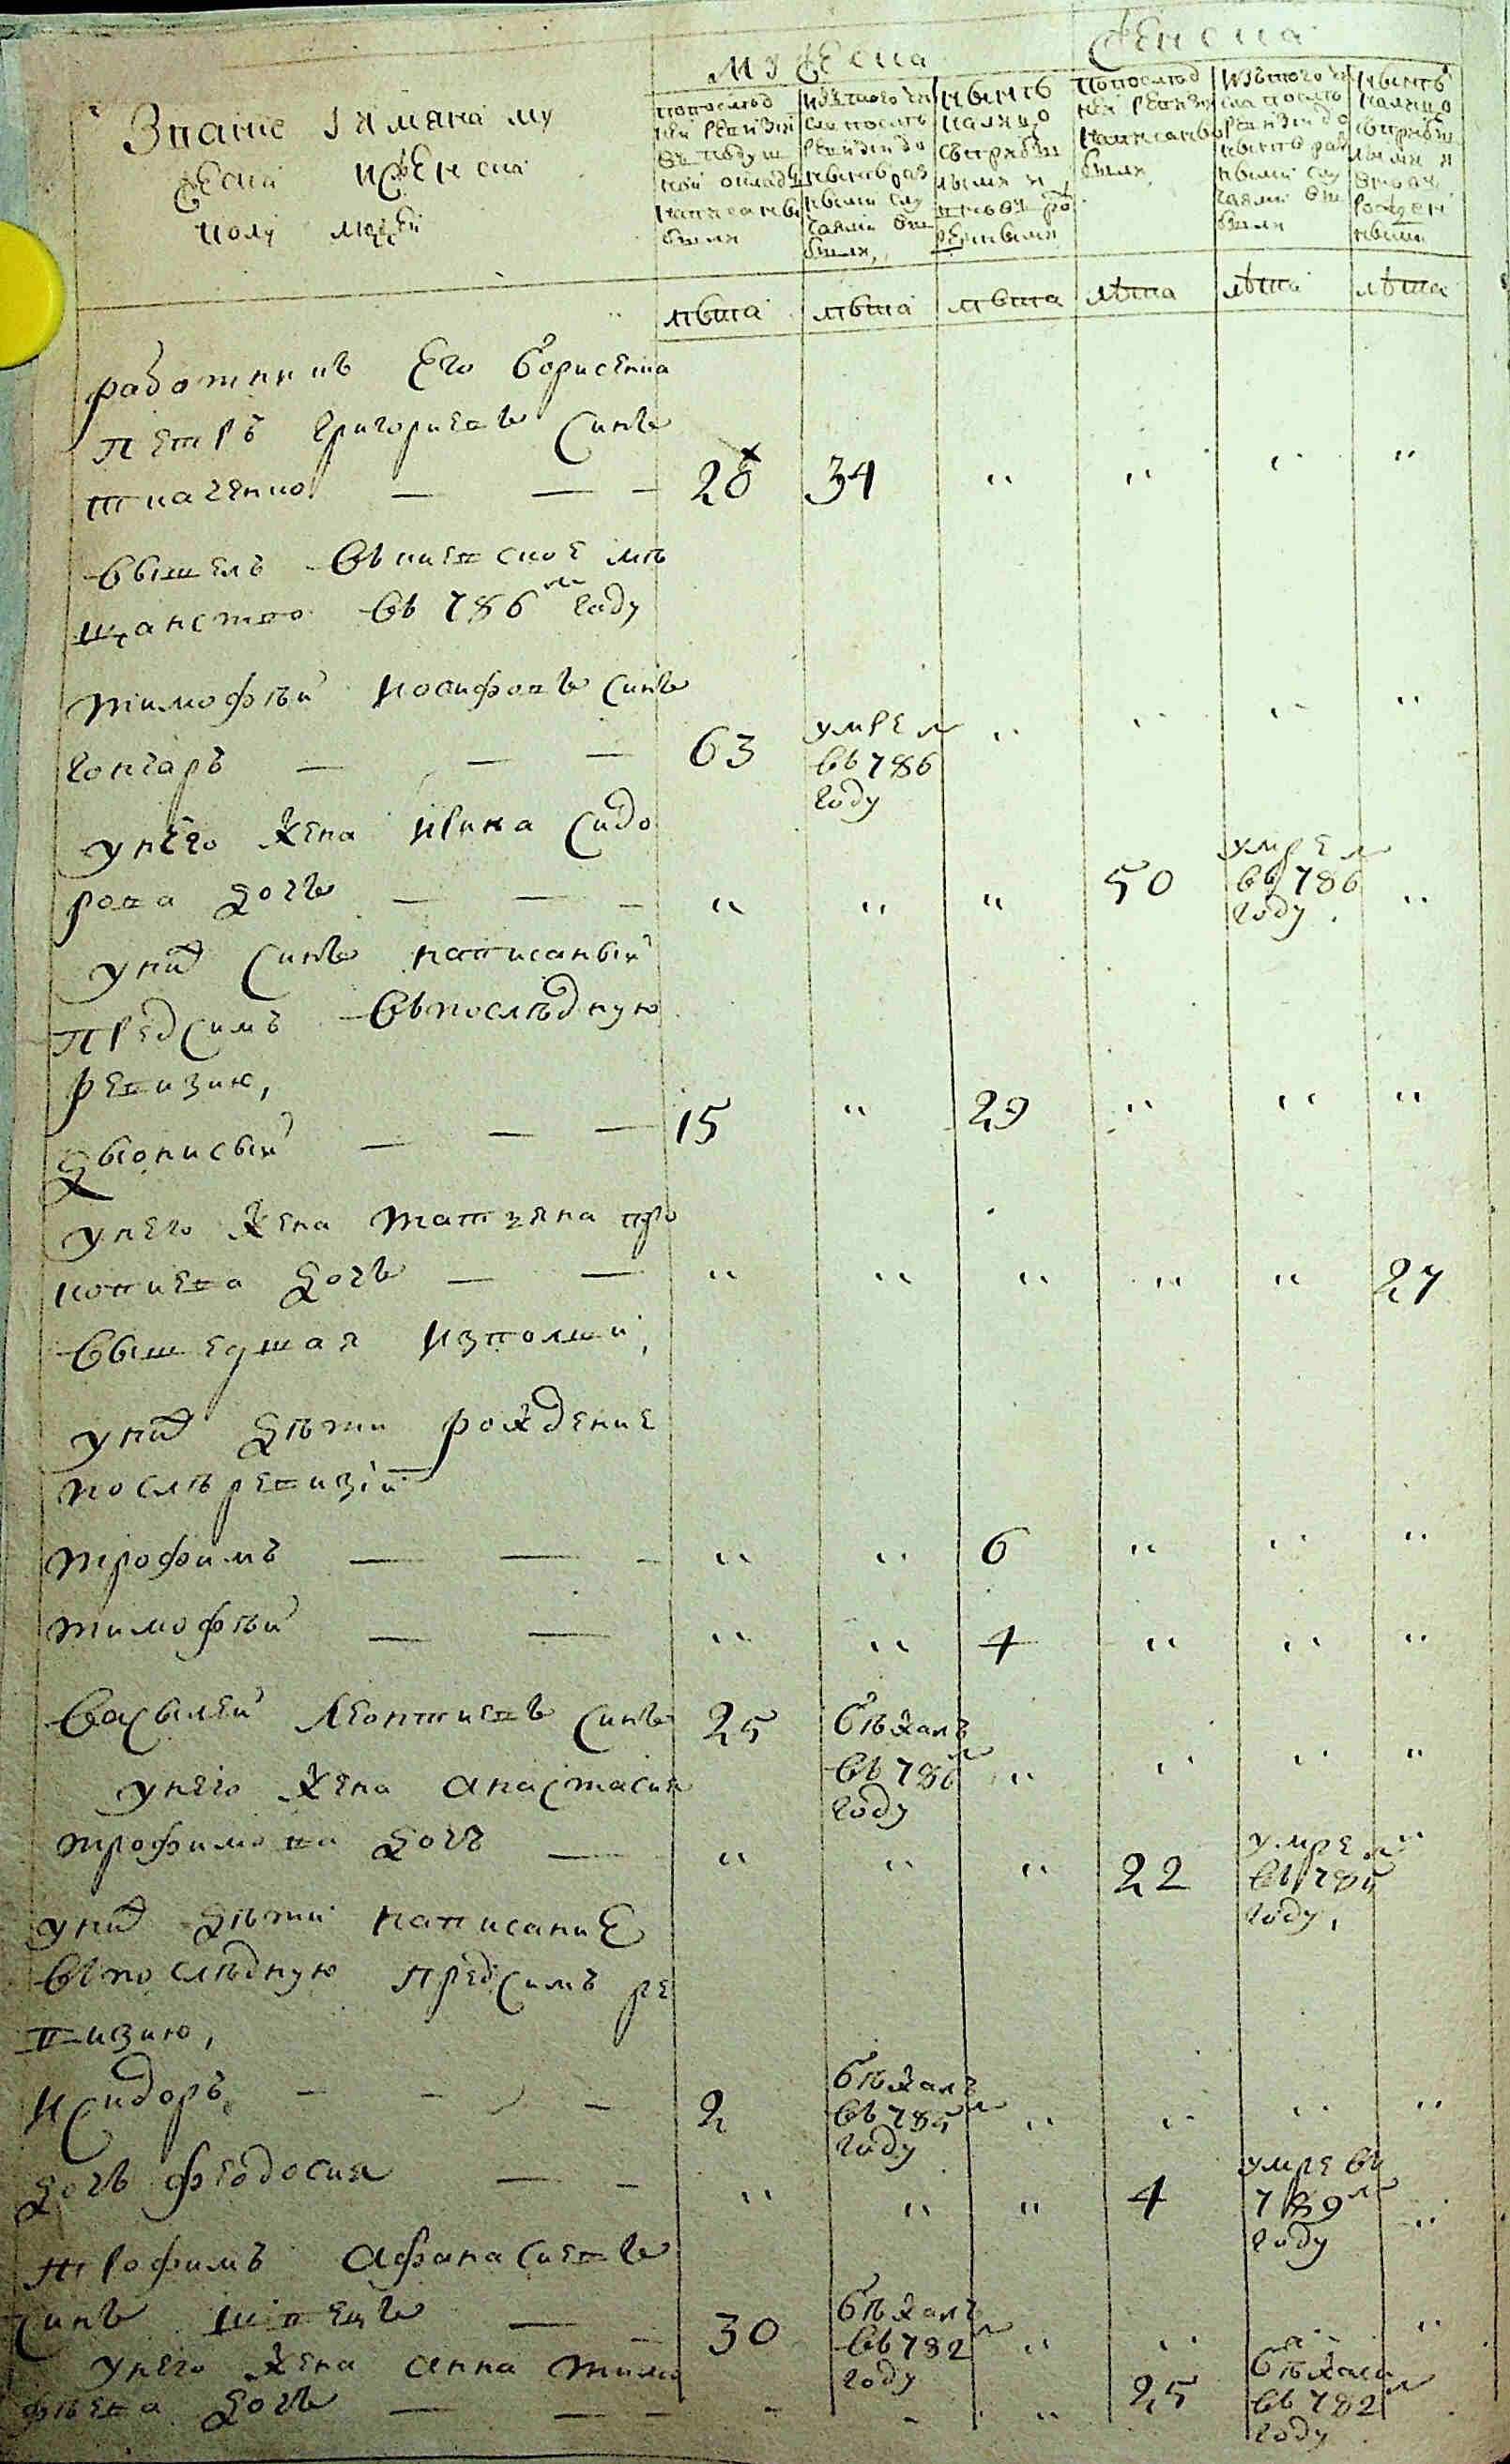 мужеска
женска
Звание и имяна му
жеска и женска
полу людей
по послед
ней ревизий
въ подуш
ной оклад
написаны
были
изтого чи
сла после
ревизии до
ныне раз
ными слу
чаями вы
были,
ныне
налицо
съ прибы
лыми и
вновь ро
жденными
по послед
ней ревизии
написаны
были
изтого чи
сла после
ревизии до
ныне раз
ными слу
чаями вы
были
ныне
налицо
съ прибы
лыми и
вновь
рожден
ными
лѣта лѣта лѣта лѣта лѣта лѣта
работникъ его борисенка
петръ григориевъ синъ
ткаченко — — — 28 34 " " " "
вышелъ въ киевское мѣ
щанство въ 786м году
тимофѣй иосифовъ синъ
гончаръ — — — 63 умре въ 786 году " " " "
унего жена ирина сидо
рова дочь — — — " " " 50 умре въ 786 году "
уних синъ написаный
предсимъ въпослѣдную
ревизию,
дионисый — — — 15 " 29 " " "
унего жена татияна про
копиева дочь — — " " " " " 27
вышедшая изполши,
уних дѣти рождение
послѣ ревизий
трофимъ — — — " " 6 " " "
тимофѣй — — " " 4 " " "
василей леонтиевъ синъ 25 бѣжалъ въ 786м году " " " "
унего жена анастасия
трофимова дочь — " " " 22 умре въ 785 году, "
уних дѣти написание
въпослѣдную предсимъ ре
визию,
исидоръ — — — 2 бѣжалъ въ 785м году " " " "
дочь феодосия — — " " " 4 умре въ 789м году "
трофимъ афанасиевъ
синъ швецъ — — 30 бѣжалъ въ 782м году " " " "
унего жена анна тимо
фѣева дочь — — — " " " 25 бѣжала въ 782м году